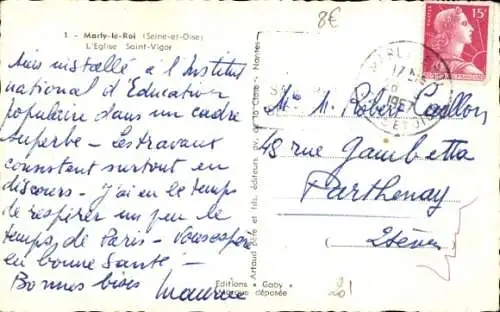 1 - Marly-le-Roi (Seine-et-Oise)
L'Eglise Saint-Vigor
8€
15F
Suis installé à l'Institut
national d'Education
populaire dans un cadre
superbe - Les travaux
consistent surtout en
discours - J'ai eu le temps
de respirer un peu le
temps de Paris - Vous espère
en bonne santé -
Bonnes bises Maurice
Artaud père et fils, éditeurs, Nantes
Editions « Gaby »
Marque déposée
1957
Robert
48 rue Gambetta
Parthenay
2 Sèvres